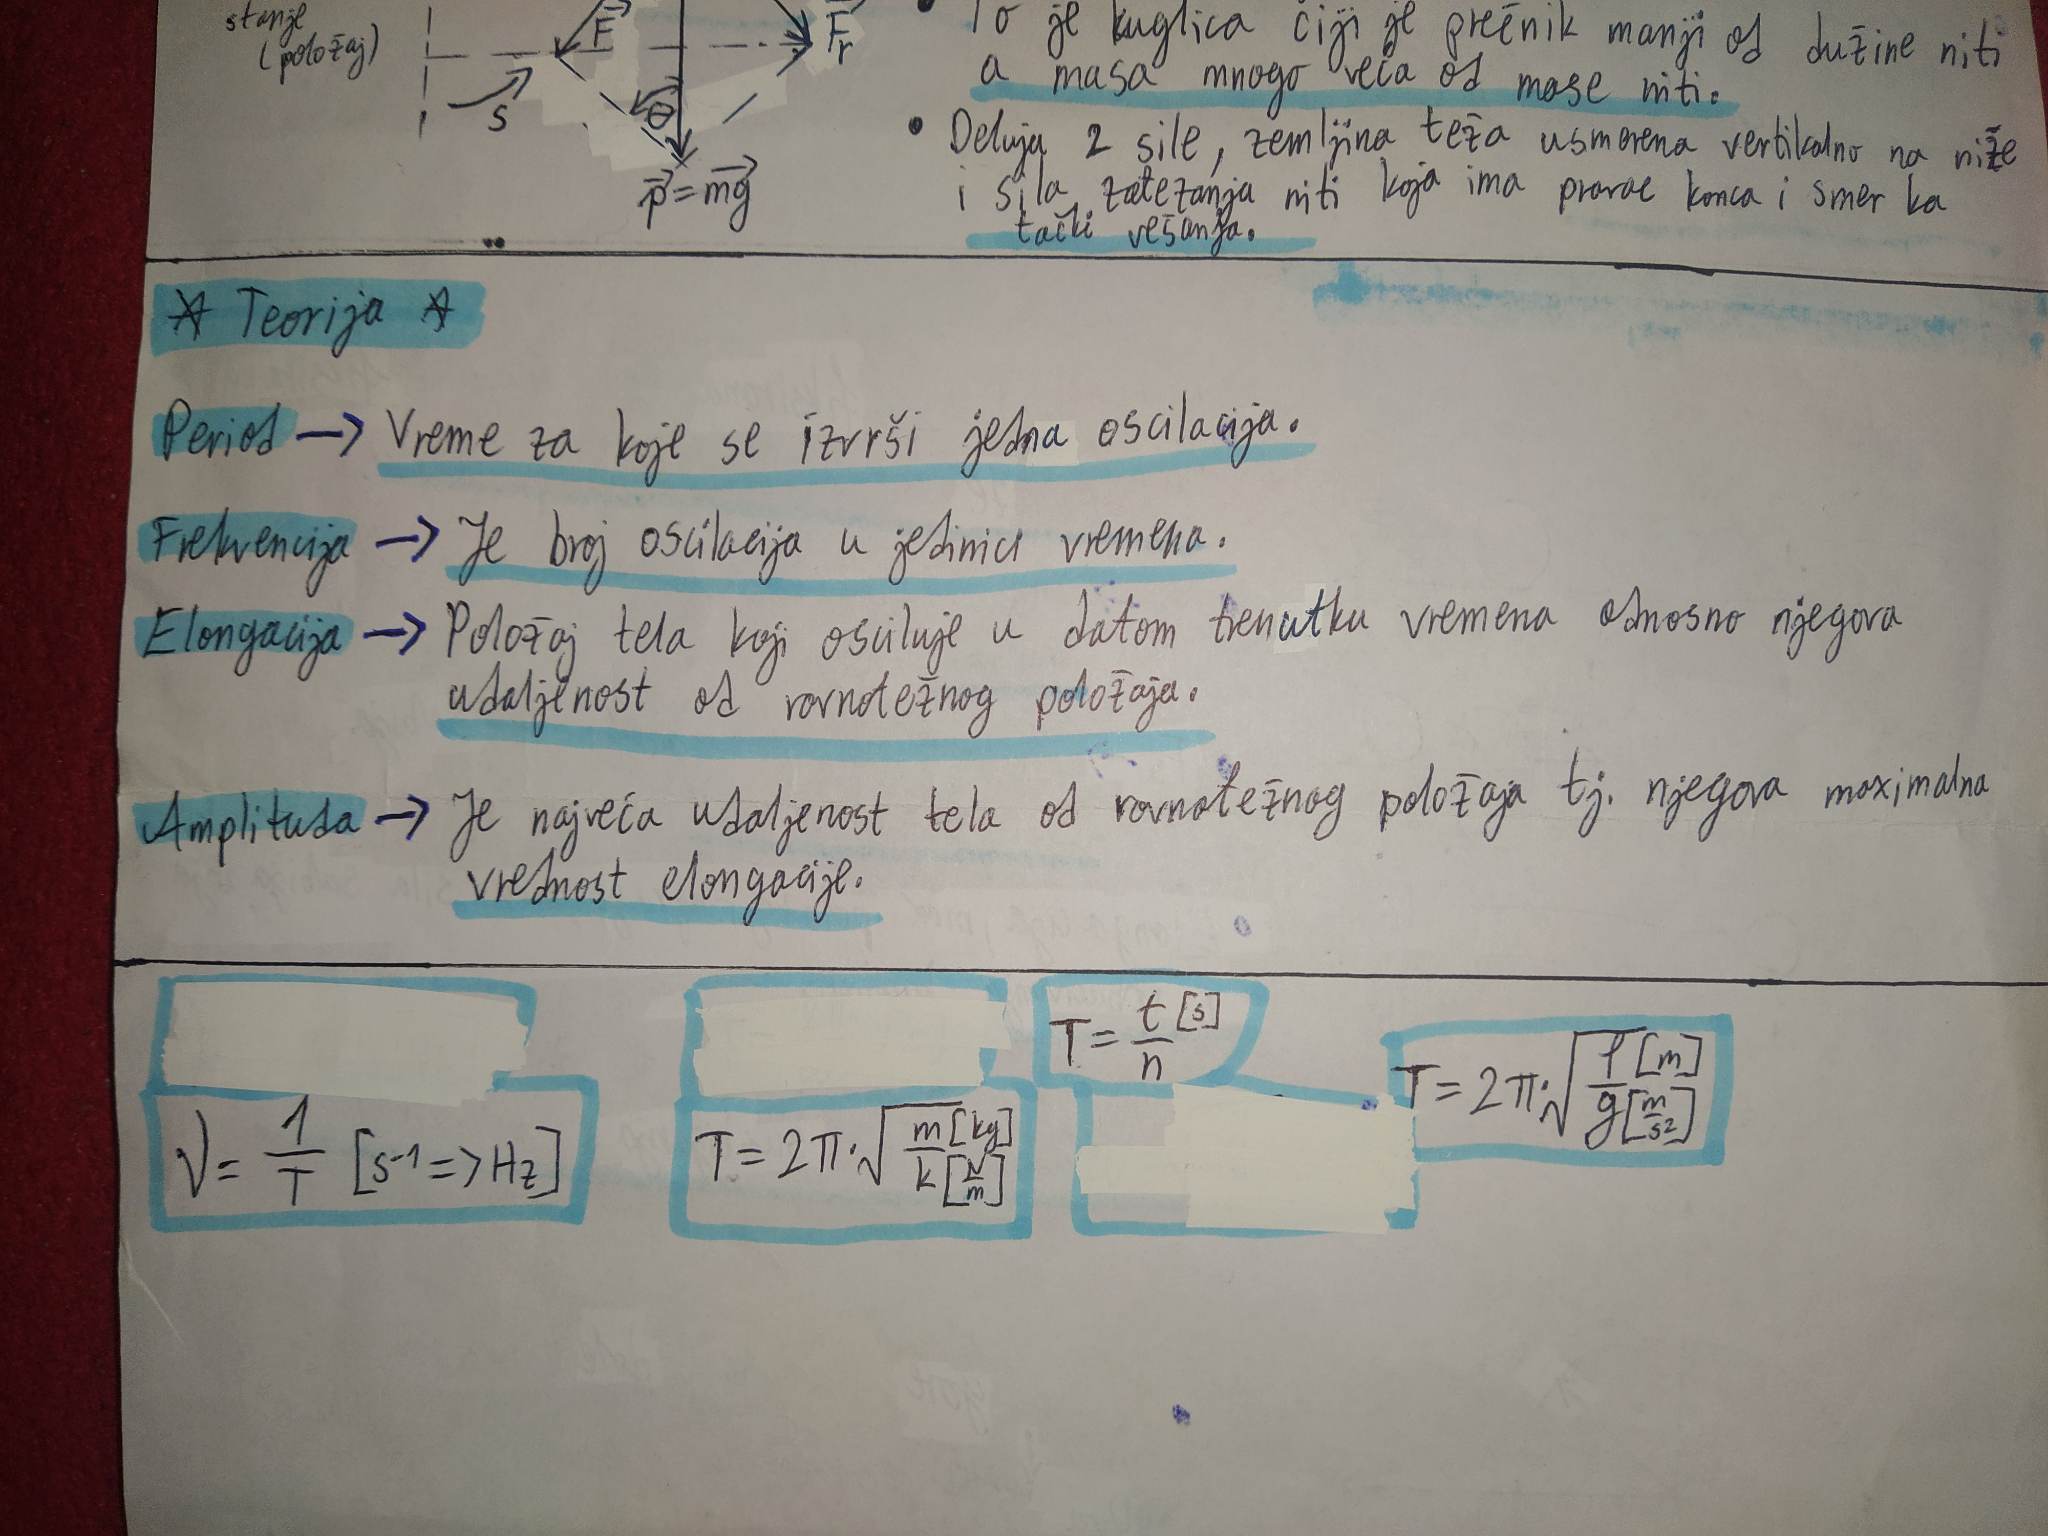 stanje
(položaj)
F
Fr
s
θ
p = mg
• To je kuglica čiji je prečnik manji od dužine niti
a masa mnogo veća od mase niti.
• Deluju 2 sile, zemljina teža usmerena vertikalno na niže
i sila zatezanja niti koja ima pravac konca i smer ka
tački vešanja.
☆ Teorija ☆
Period → Vreme za koje se izvrši jedna oscilacija.
Frekvencija → Je broj oscilacija u jedinici vremena.
Elongacija → Položaj tela koji osciluje u datom trenutku vremena odnosno njegova
udaljenost od ravnotežnog položaja.
Amplituda → Je najveća udaljenost tela od ravnotežnog položaja tj. njegova maximalna
vrednost elongacije.
T = t/n [s]
T = 2π·√(l [m] / g [m/s²])
ν = 1/T [s⁻¹ => Hz]
T = 2π·√(m [kg] / k [N/m])